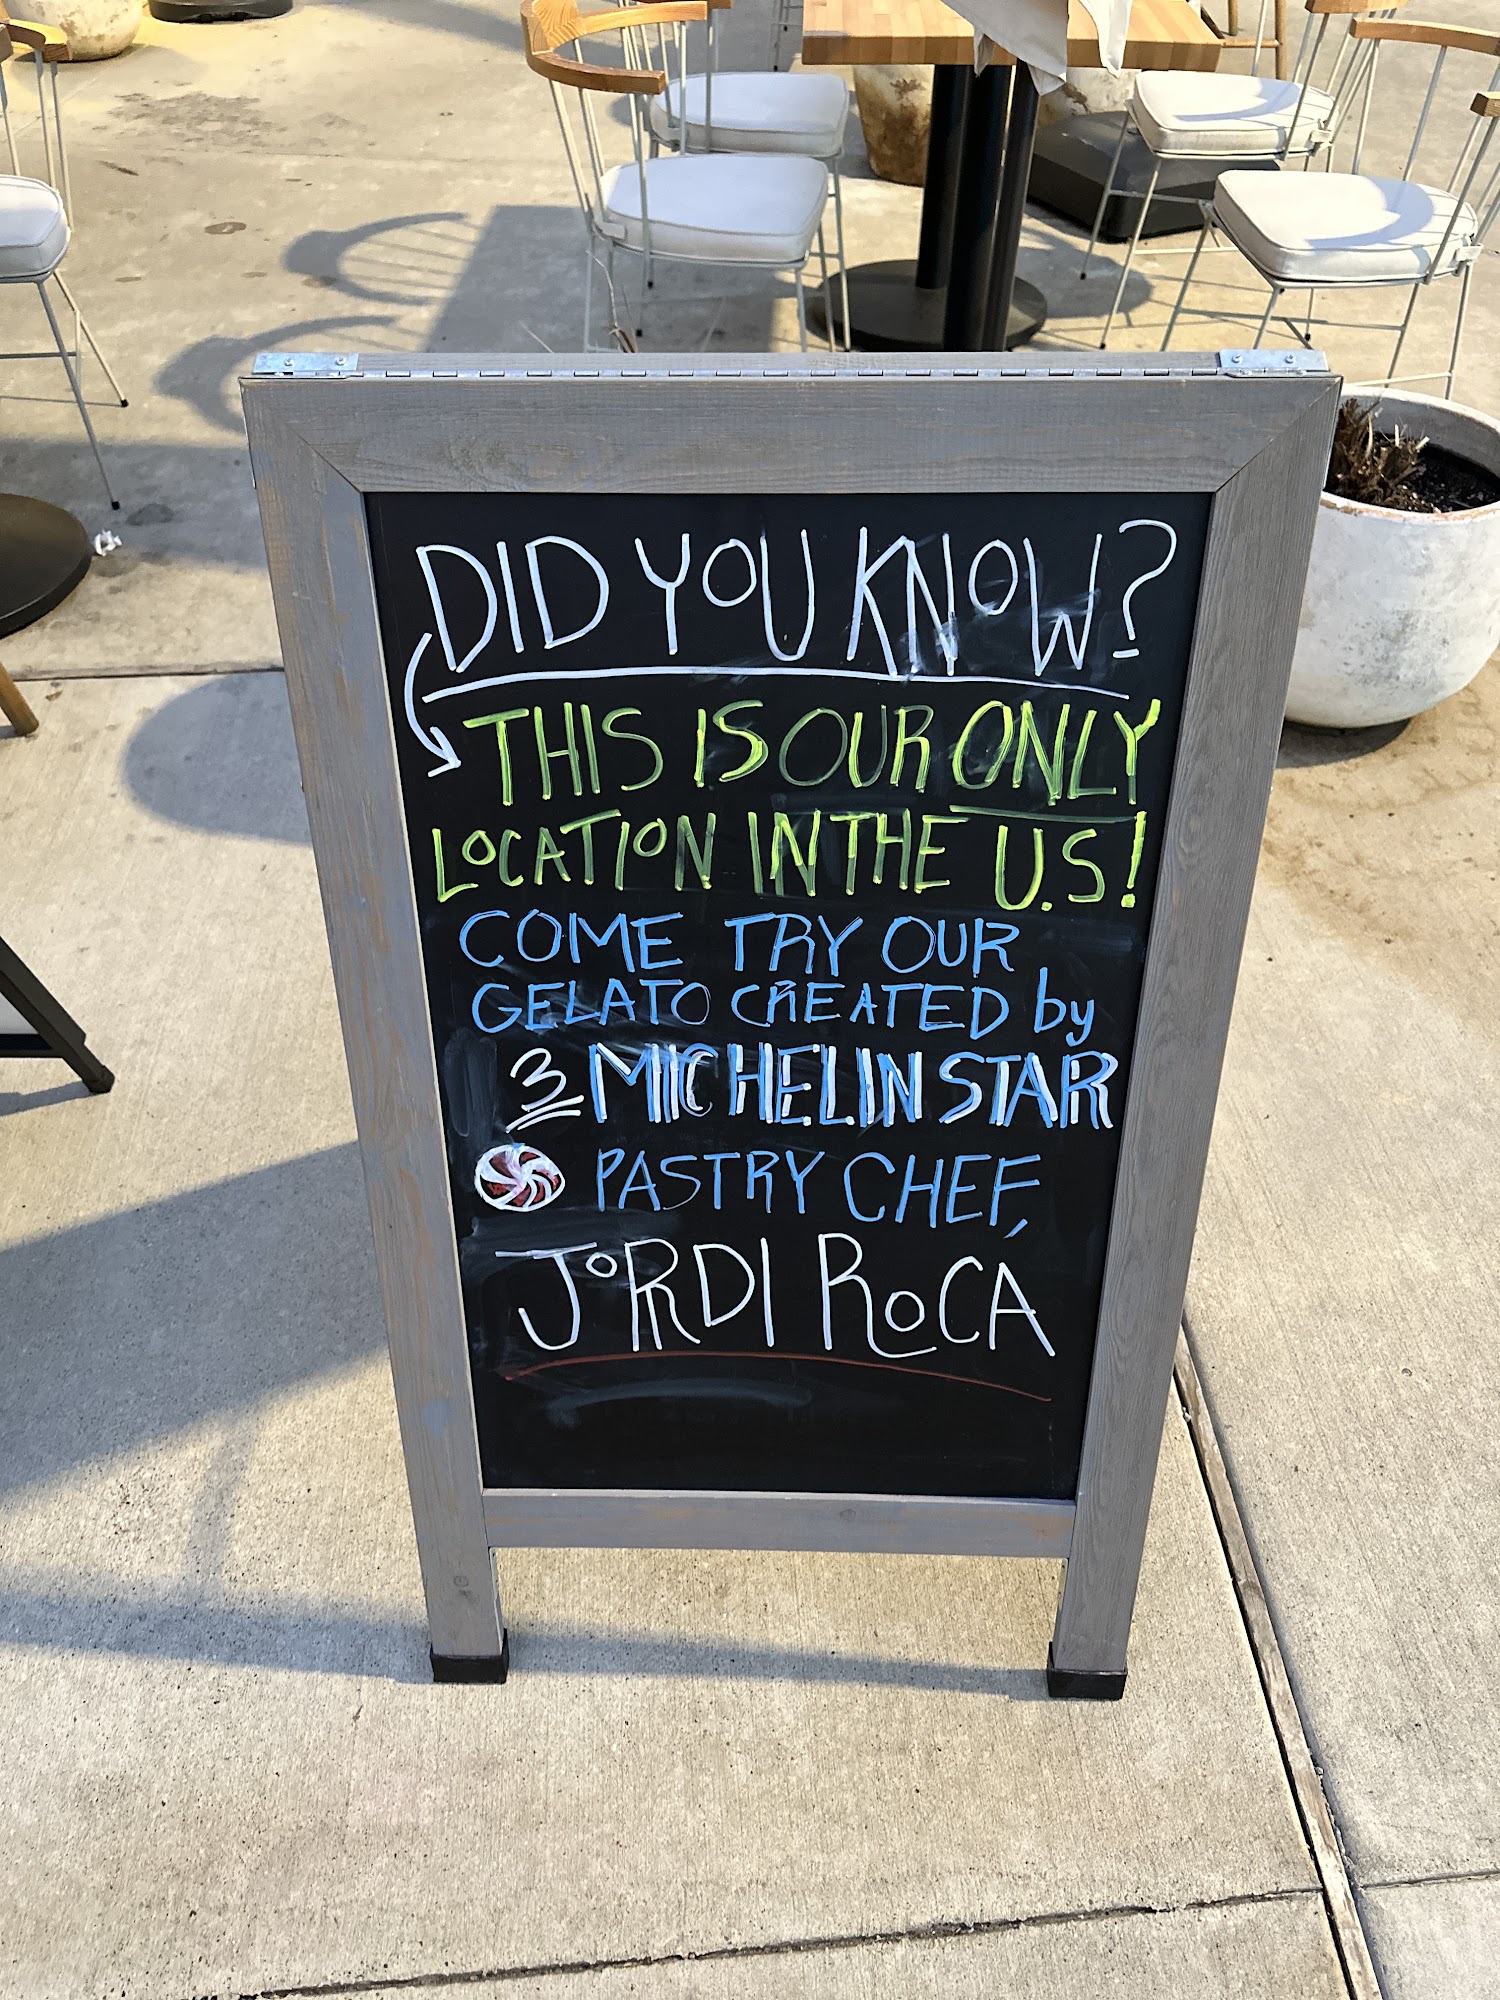 DID YOU KNOW?
THIS IS OUR ONLY
LOCATION IN THE U.S!
COME TRY OUR
GELATO CREATED by
3 MICHELIN STAR
PASTRY CHEF,
JORDI ROCA